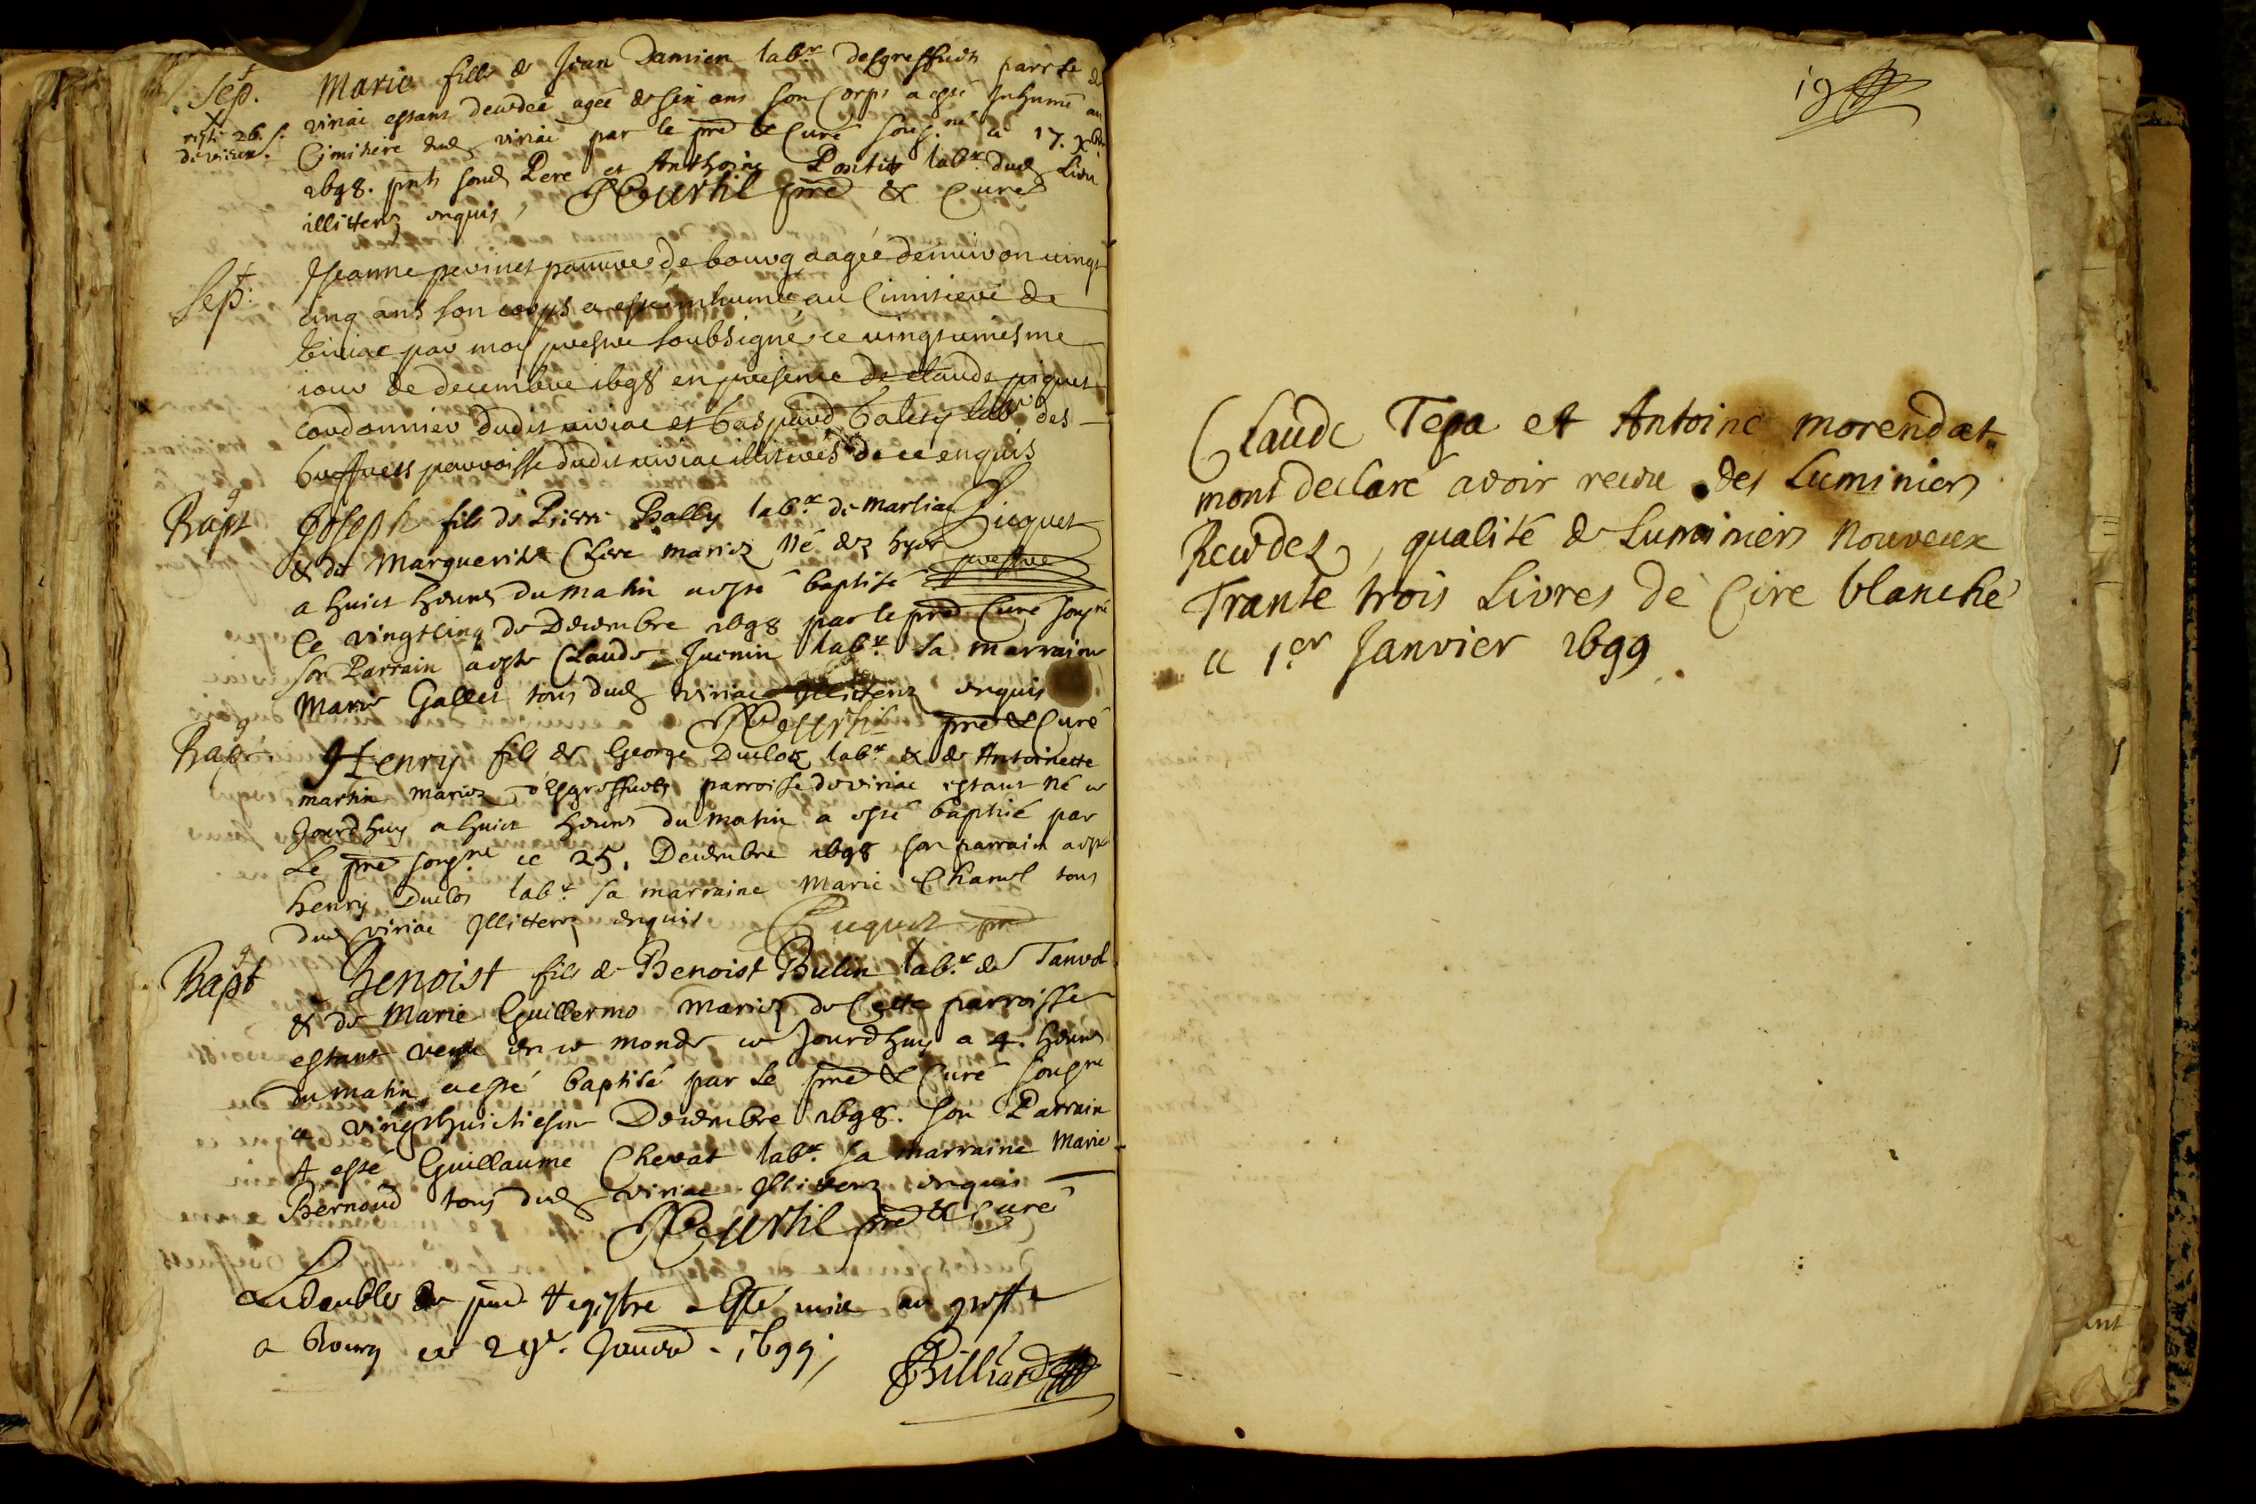 Sep.t
Marie fille de Jean Damien lab.r desgreffiets parr.se de
viriac estant decedée agée de six ans son Corps a esté Inhumé au
Cimitiere dud viriac par le pre & Curé sousg.né ce 17. Xbre
1698. pnts sond Pere et Anthoine lab.r dud
illiterez enquis, pre & Curé
Sep.t
Jeanne pauvre de bourg aagée denviron vingt
cinq ans son corps a esté inhumé au Cimitiere de
Viriac par moy prestre soubsigné ce vingtuniesme
iour de decembre 1698 en presence de claude piquet
cordonnier dudit viriac et gaspard lab.r des
greffiets parroisse dudit viriac illiterés de ce enquis
Bapt
Joseph fils de Pierre Bally lab.r de marliac
Picquet
& de Marguerite Clere mariez Né dez hyer
prestre
a huict heures du matin a esté baptisé
le vingtcinq de Decembre 1698 par le pre Curé sousg.né
son Parrain a esté Claude Juenin lab.r sa marraine
Marie Gallet tous dud viriac Illiterez enquis
pre & Curé
Bapt.
Henry fils de George Duclos lab.r & de Antoinette
martin mariez desgreffiets parroisse de viriac estant Né ce
Jourdhuy a huict heures du matin a esté baptisé par
Le pre sousg.né ce 25. Decembre 1698 son parrain a esté
henry Duclos lab.r sa marraine Marie Charvet tous
dud viriac Illiterez enquis
Picquet pre
Bapt
Benoist fils de Benoist Bulin lab.r de Tanvol
& de Marie Guillermo mariez de Cette parroisse
estant venu en ce monde ce Jourdhuy a 4. heures
du matin a esté baptisé par Le pre & Curé sousg.né
ce vingthuictiesme Decembre 1698. son Parrain
A esté Guillaume Chevat lab.r sa marraine Marie
Bernoud tous dud viriac Illiterez enquis
pre & Curé
Le double du pnt Registre a Esté mis au greffe
a Bourg ce 29e. Janvier 1699,
Billiard
19
Claude Tepa et Antoine morendat
mont declaré avoir receu des Luminiers
, qualité de Luminiers Nouveux
Trante trois Livres de Cire blanche
ce 1.er Janvier 1699.